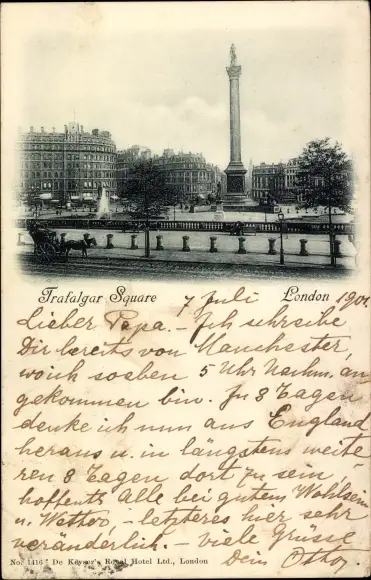 Trafalgar Square 7 Juli London 1901.
Lieber Papa. - Ich schreibe
Dir bereits von Manchester,
wo ich soeben 5 Uhr Nachm. an
gekommen bin. In 8 Tagen
denke ich nun aus England
heraus u. in längstens weite
ren 8 Tagen dort zu sein,
hoffentl. Alle bei gutem Wohlsein
u. Wetter, - letzteres hier sehr
veränderlich. - viele Grüsse
No. 1416 De Keyser's Royal Hotel Ltd., London Dein Otto.